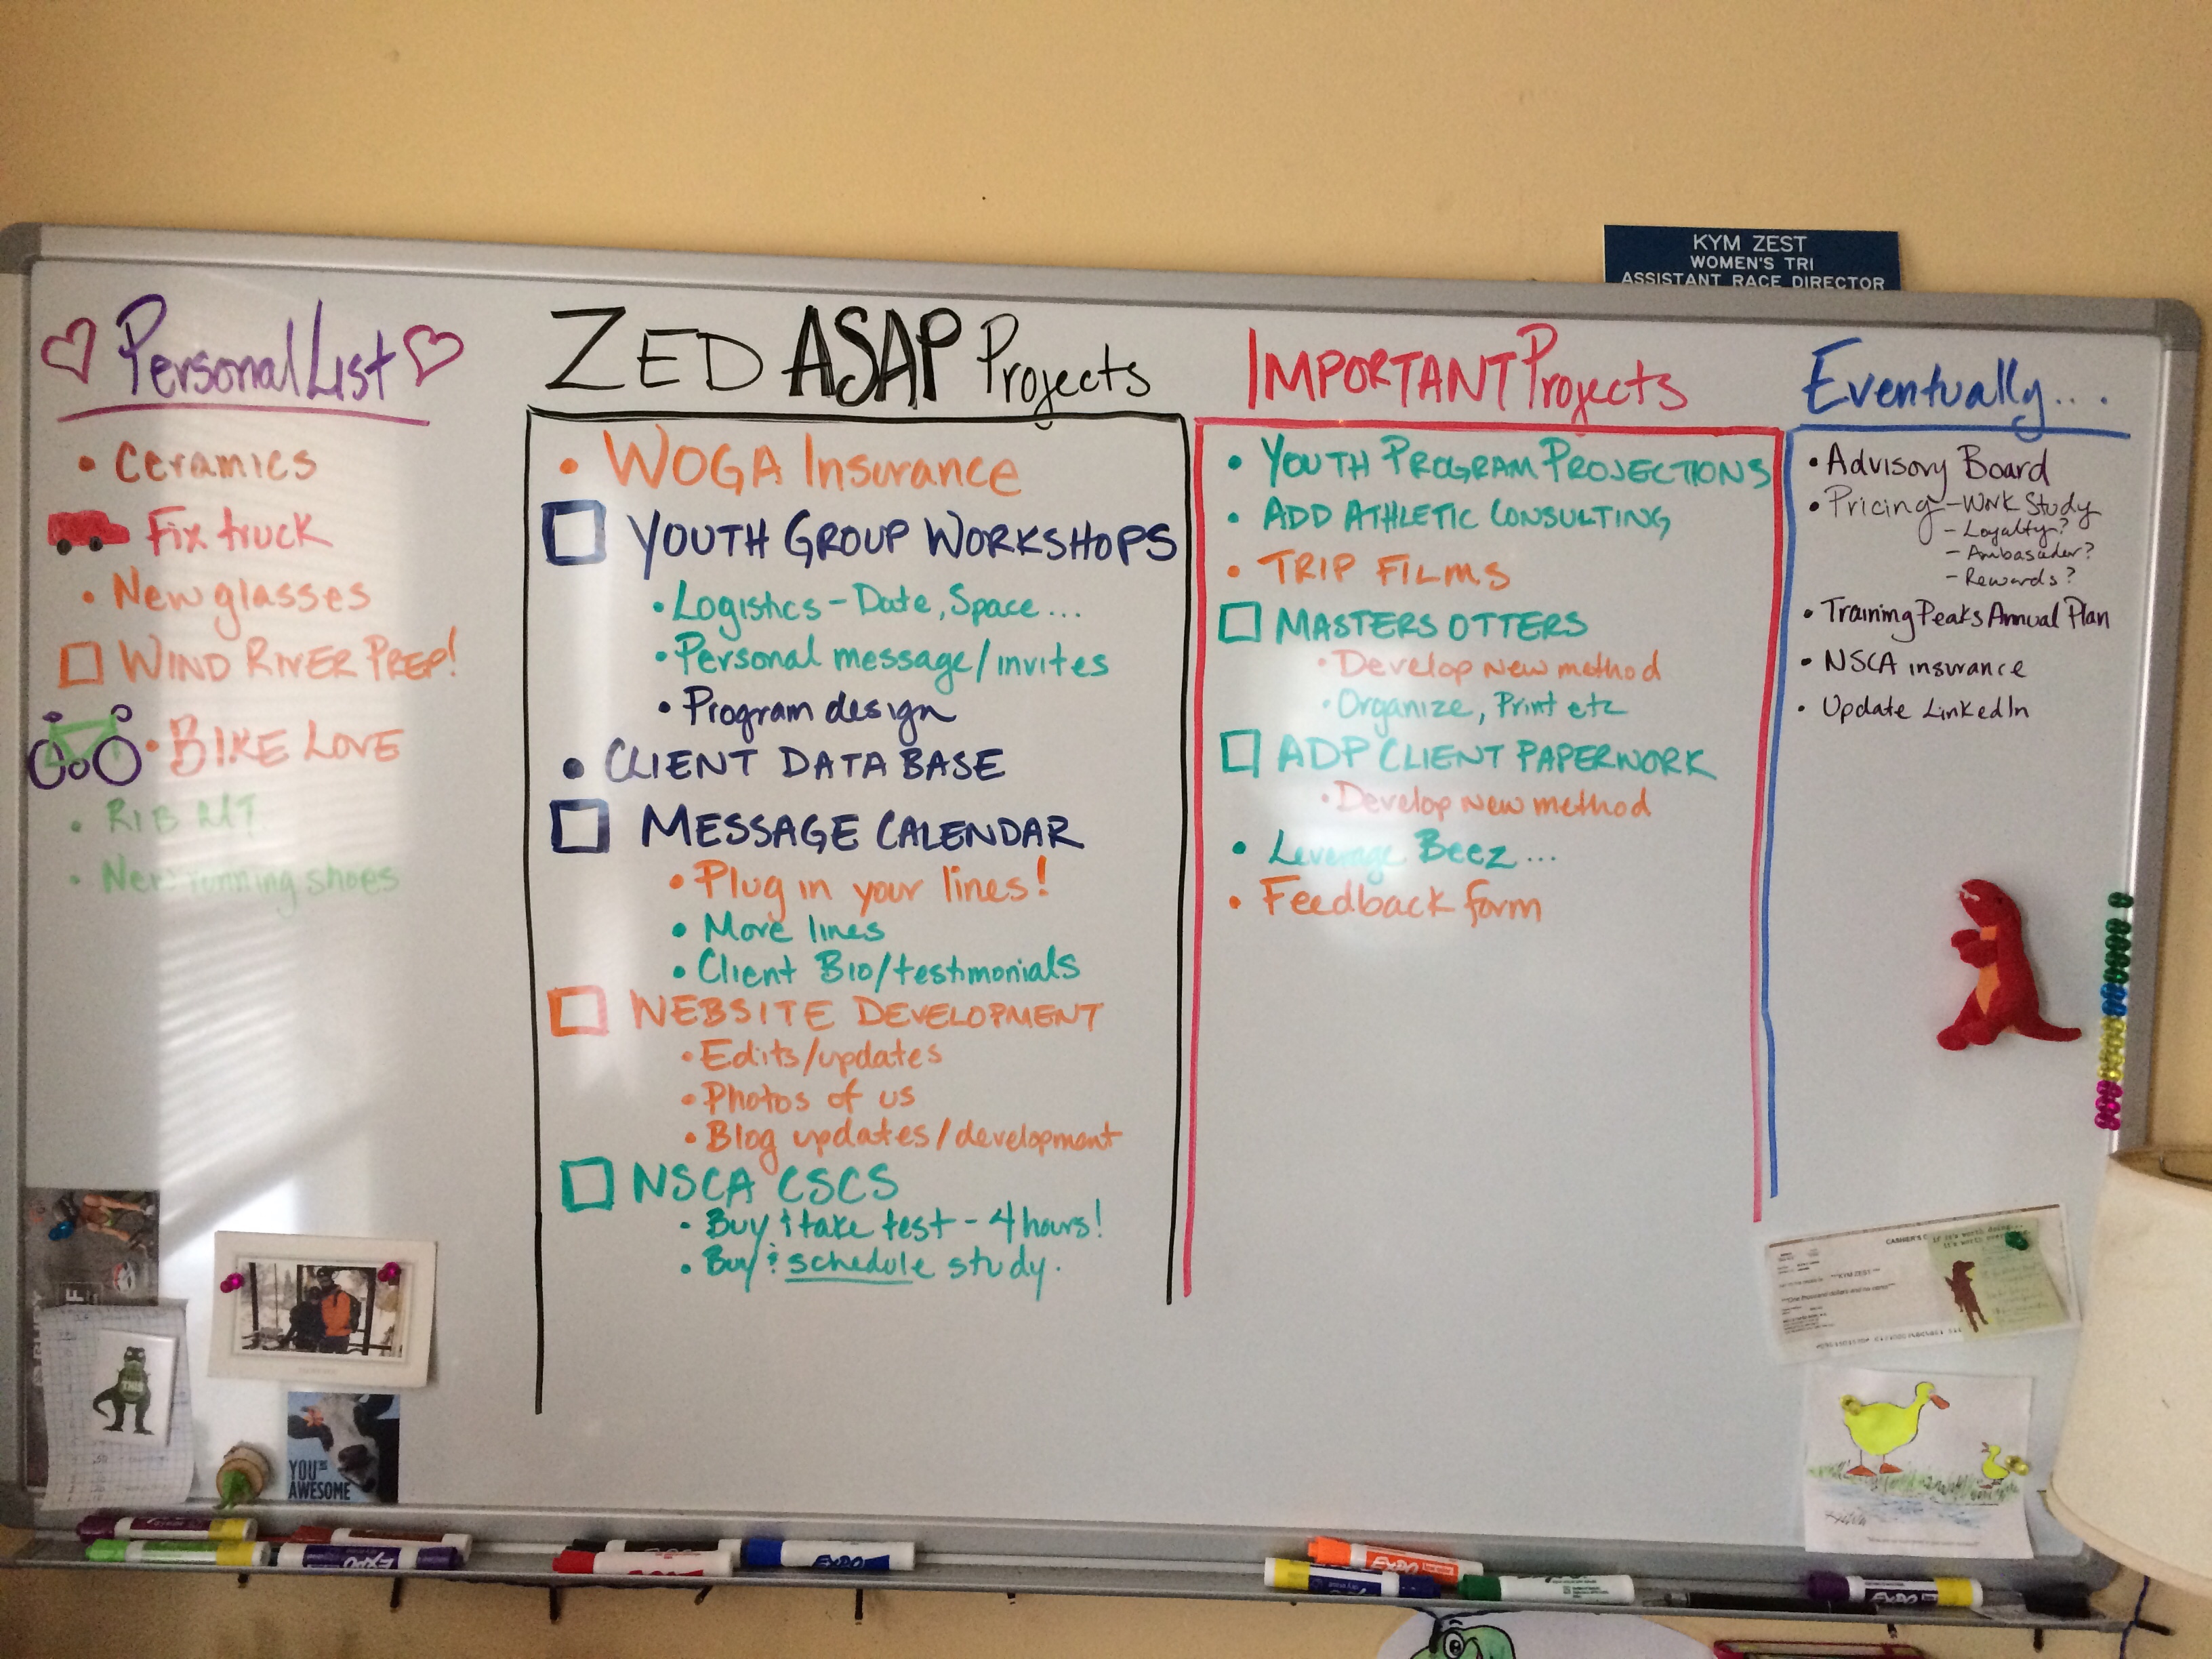 KYM ZEST
WOMEN'S TRI
ASSISTANT RACE DIRECTOR
Personal List
• Ceramics
Fix truck
• New glasses
WIND RIVER PREP!
• BIKE LOVE
• RIB MT
• New running shoes
ZED ASAP Projects
• WOGA Insurance
YOUTH GROUP WORKSHOPS
• Logistics - Date, Space ...
• Personal message/invites
• Program design
• CLIENT DATABASE
MESSAGE CALENDAR
• Plug in your lines!
• More lines
• Client Bio/testimonials
WEBSITE DEVELOPMENT
• Edits/updates
• Photos of us
• Blog updates/development
NSCA CSCS
• Buy & take test - 4 hours!
• Buy & schedule study.
IMPORTANT Projects
• YOUTH PROGRAM PROJECTIONS
• ADD ATHLETIC CONSULTING
• TRIP FILMS
MASTERS OTTERS
• Develop new method
• Organize, Print etc
ADP CLIENT PAPERWORK
• Develop new method
• Leverage Beez ...
• Feedback form
Eventually....
• Advisory Board
• Pricing - Work Study
- Loyalty?
- Ambasader?
- Rewards?
• Training Peaks Annual Plan
• NSCA insurance
• Update LinkedIn
CASHIER'S C
if it's worth doing...
it's worth over
**KYM ZEST**
**One thousand dollars and no cents**
THIS
YOU'RE
AWESOME
EXPO
EXPO
EXPO
EXPO
EXPO